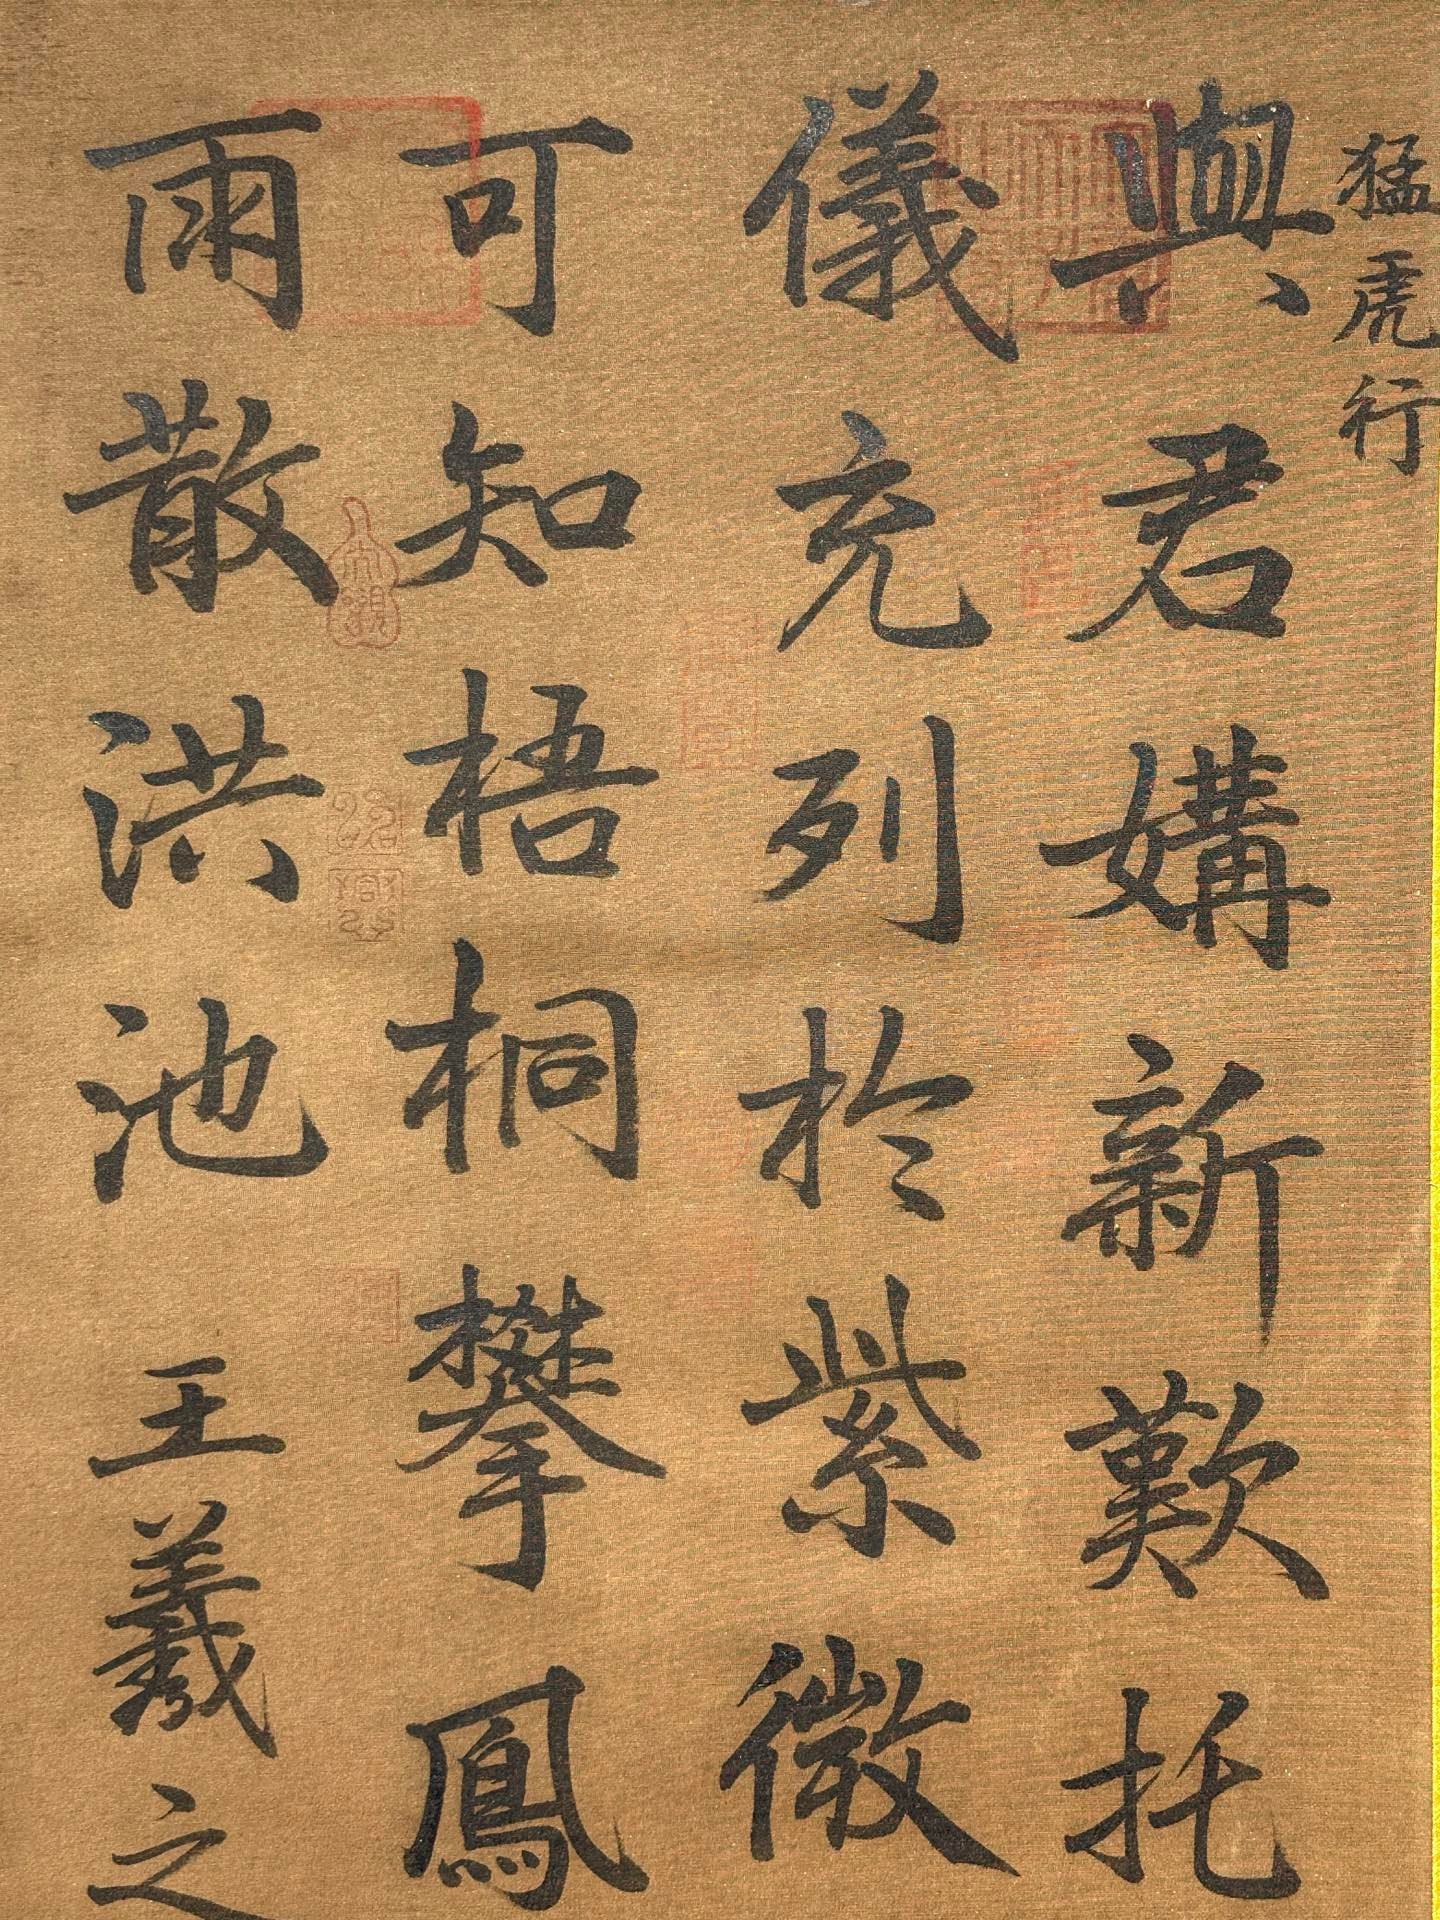 猛虎行
與君媾新歎托
儀充列於紫微
可知梧桐攀鳳
雨散洪池
王羲之